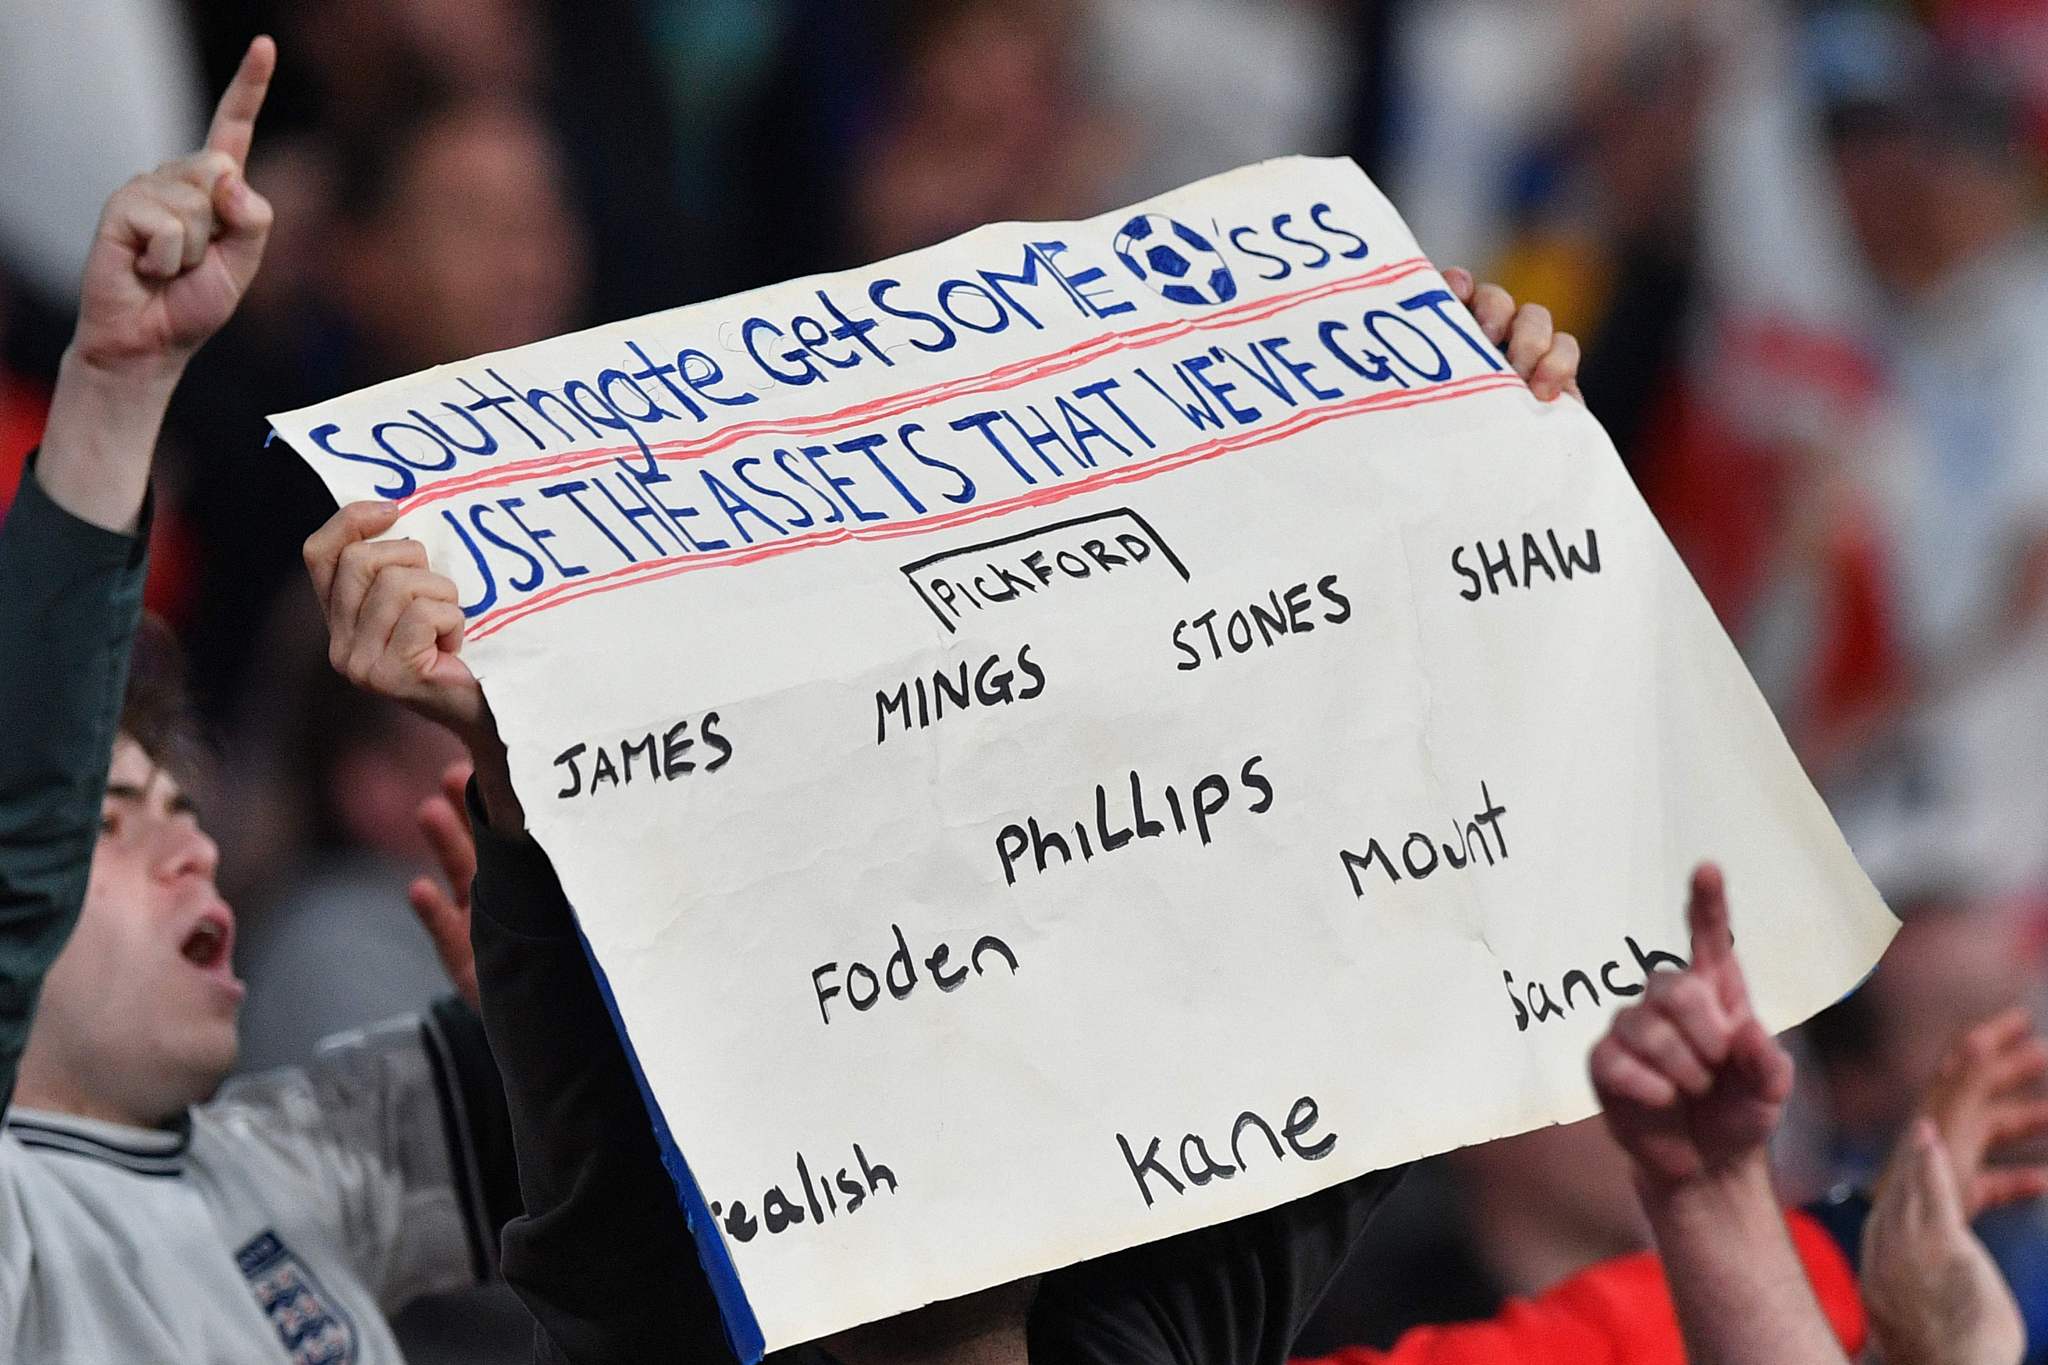 Southgate Get SOME 'SSS
USE THE ASSETS THAT WE'VE GOT
PICKFORD
JAMES MINGS STONES SHAW
PhiLLIPS MOUnt
Foden Sanch
ealish Kane